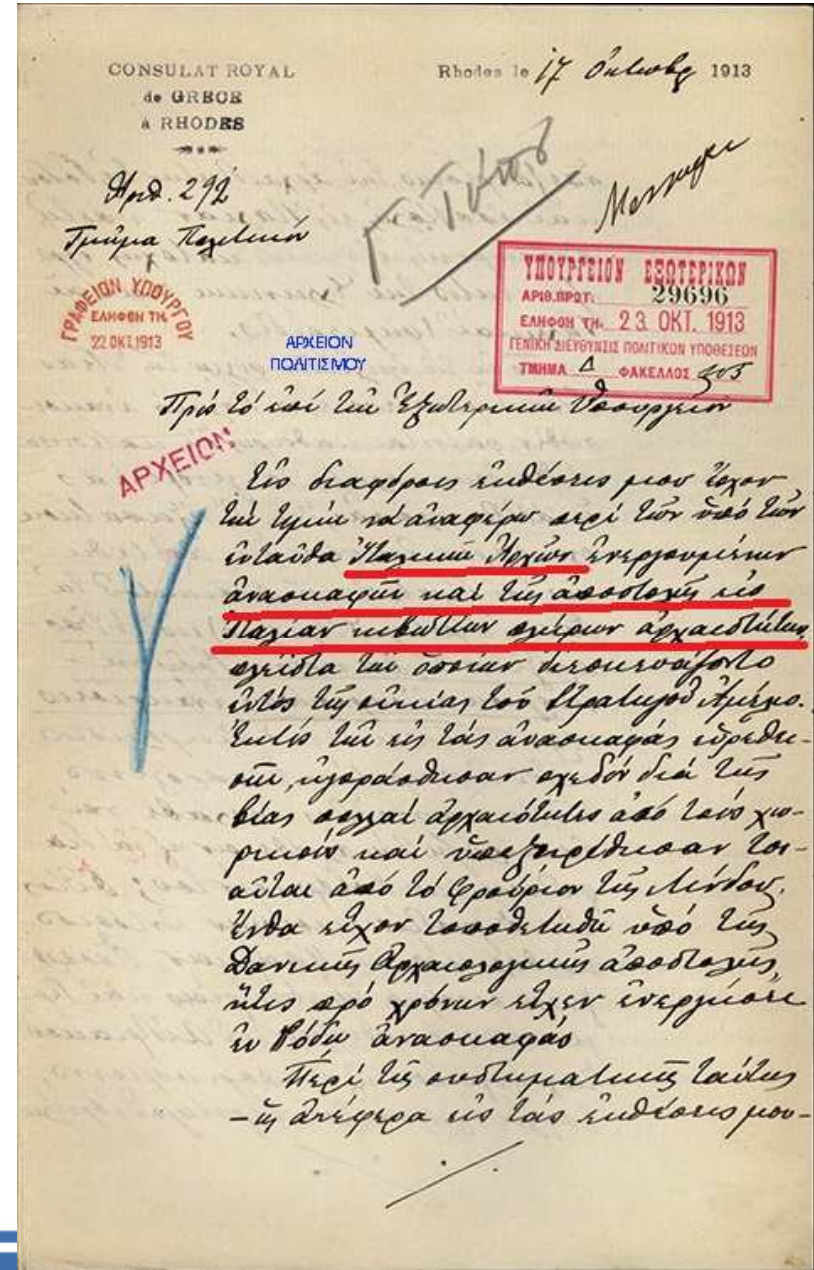 CONSULAT ROYAL
de GRECE
à RHODES
Rhodes le 17 Ὀκτωβρ 1913
Ἀριθ. 292
Τμῆμα Πολιτικόν
Γ Τύπου
ΓΡΑΦΕΙΟΝ ΥΠΟΥΡΓΟΥ
ΕΛΗΦΘΗ ΤΗ.
22 ΟΚΤ. 1913
ΑΡΧΕΙΟΝ
ΠΟΛΙΤΙΣΜΟΥ
ΥΠΟΥΡΓΕΙΟΝ ΕΞΩΤΕΡΙΚΩΝ
ΑΡΙΘ. ΠΡΩΤ. 29696
ΕΛΗΦΘΗ ΤΗ. 23. ΟΚΤ. 1913
ΓΕΝΙΚΗ ΔΙΕΥΘΥΝΣΙΣ ΠΟΛΙΤΙΚΩΝ ΥΠΟΘΕΣΕΩΝ
ΤΜΗΜΑ Δ ΦΑΚΕΛΛΟΣ
Πρὸς τὸ ἐπὶ τῶν Ἐξωτερικῶν Ὑπουργεῖον
ΑΡΧΕΙΟΝ
Εἰς διαφόρους ἐκθέσεις μου ἔσχον
τὴν τιμὴν νὰ ἀναφέρω περὶ τῶν ὑπὸ τῶν
ἐνταῦθα Ἰταλικῶν Ἀρχῶν ἐνεργουμένων
ἀνασκαφῶν καὶ τῆς ἀποστολῆς εἰς
Ἰταλίαν κιβωτίων πλήρων ἀρχαιοτήτων,
πλεῖστα τῶν ὁποίων διεσκευάζοντο
ἐντὸς τῆς οἰκίας τοῦ Στρατηγοῦ Ἀμέλιο.
Ἐκτὸς τῶν εἰς τὰς ἀνασκαφὰς εὑρεθει-
σῶν, ἠγοράσθησαν σχεδὸν διὰ τῆς
βίας πολλαὶ ἀρχαιότητες ἀπὸ τοὺς χω-
ρικοὺς καὶ ὑπεξῃρέθησαν τοι-
αῦται ἀπὸ τὸ φρούριον τῆς Λίνδου,
ἔνθα εἶχον τοποθετηθῆ ὑπὸ τῆς
Δανικῆς Ἀρχαιολογικῆς ἀποστολῆς,
ἥτις πρὸ χρόνων εἶχεν ἐνεργήσει
ἐν Ῥόδῳ ἀνασκαφάς
Περὶ τῆς συστηματικῆς ταύτης
– ὡς ἀνέφερα εἰς τὰς ἐκθέσεις μου –